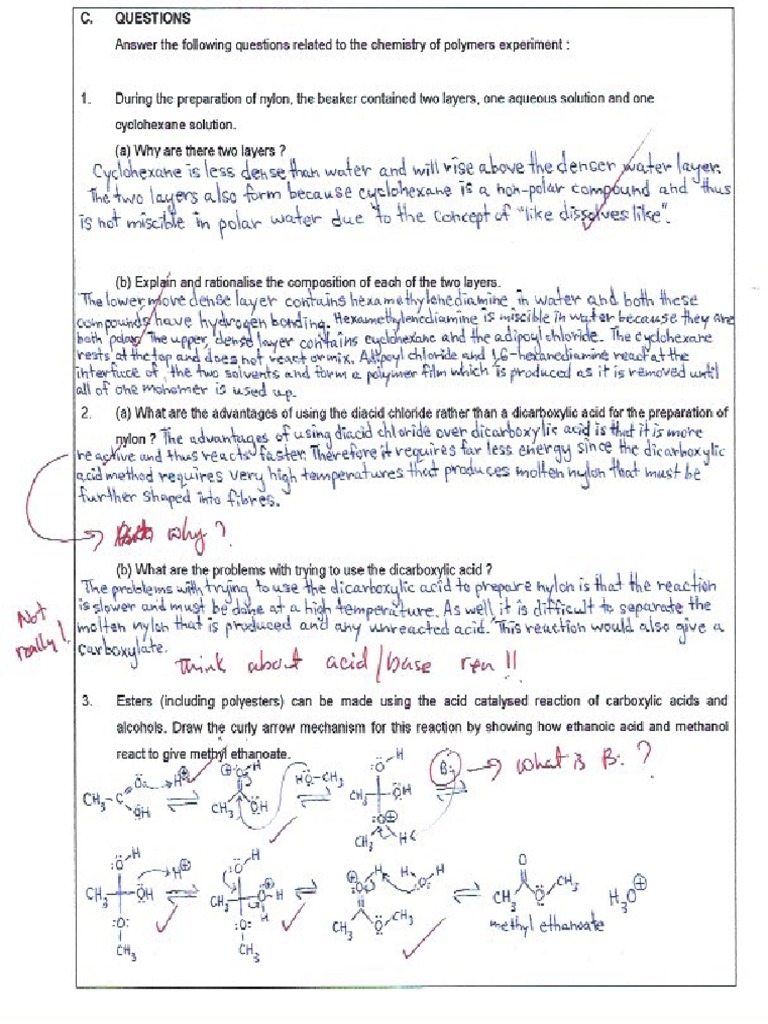 C. QUESTIONS
Answer the following questions related to the chemistry of polymers experiment :
1. During the preparation of nylon, the beaker contained two layers, one aqueous solution and one
cyclohexane solution.
(a) Why are there two layers ?
Cyclohexane is less dense than water and will rise above the denser water layer.
The two layers also form because cyclohexane is a non-polar compound and thus
is not miscible in polar water due to the concept of "like dissolves like".
(b) Explain and rationalise the composition of each of the two layers.
The lower more dense layer contains hexamethylenediamine in water and both these
compounds have hydrogen bonding. Hexamethylenediamine is miscible in water because they are
both polar. The upper, dense layer contains cyclohexane and the adipoyl chloride. The cyclohexane
rests at the top and does not react or mix. Adipoyl chloride and 1,6-hexanediamine react at the
interface of the two solvents and form a polymer film which is produced as it is removed until
all of one monomer is used up.
2. (a) What are the advantages of using the diacid chloride rather than a dicarboxylic acid for the preparation of
nylon ? The advantages of using diacid chloride over dicarboxylic acid is that it is more
reactive and thus reacts faster. Therefore it requires far less energy since the dicarboxylic
acid method requires very high temperatures that produces molten nylon that must be
further shaped into fibres.
why ?
(b) What are the problems with trying to use the dicarboxylic acid ?
The problems with trying to use the dicarboxylic acid to prepare nylon is that the reaction
is slower and must be done at a high temperature. As well it is difficult to separate the
molten nylon that is produced and any unreacted acid. This reaction would also give a
carboxylate.
Not
really !
Think about acid/base rxn !!
3. Esters (including polyesters) can be made using the acid catalysed reaction of carboxylic acids and
alcohols. Draw the curly arrow mechanism for this reaction by showing how ethanoic acid and methanol
react to give methyl ethanoate.
B: → what is B: ?
CH3-C O OH H⊕ ⇌ ⊕O H CH3 OH HO-CH3 ⇌ :O-H CH3 OH :O⊕ CH3 H ⇌
:O-H H⊕ CH3 OH :O: CH3 ⇌ :O-H CH3 O⊕-H H :O: CH3 ⇌ ⊕O H H O H CH3 O CH3 ⇌ O CH3 O CH3 H3O⊕
methyl ethanoate